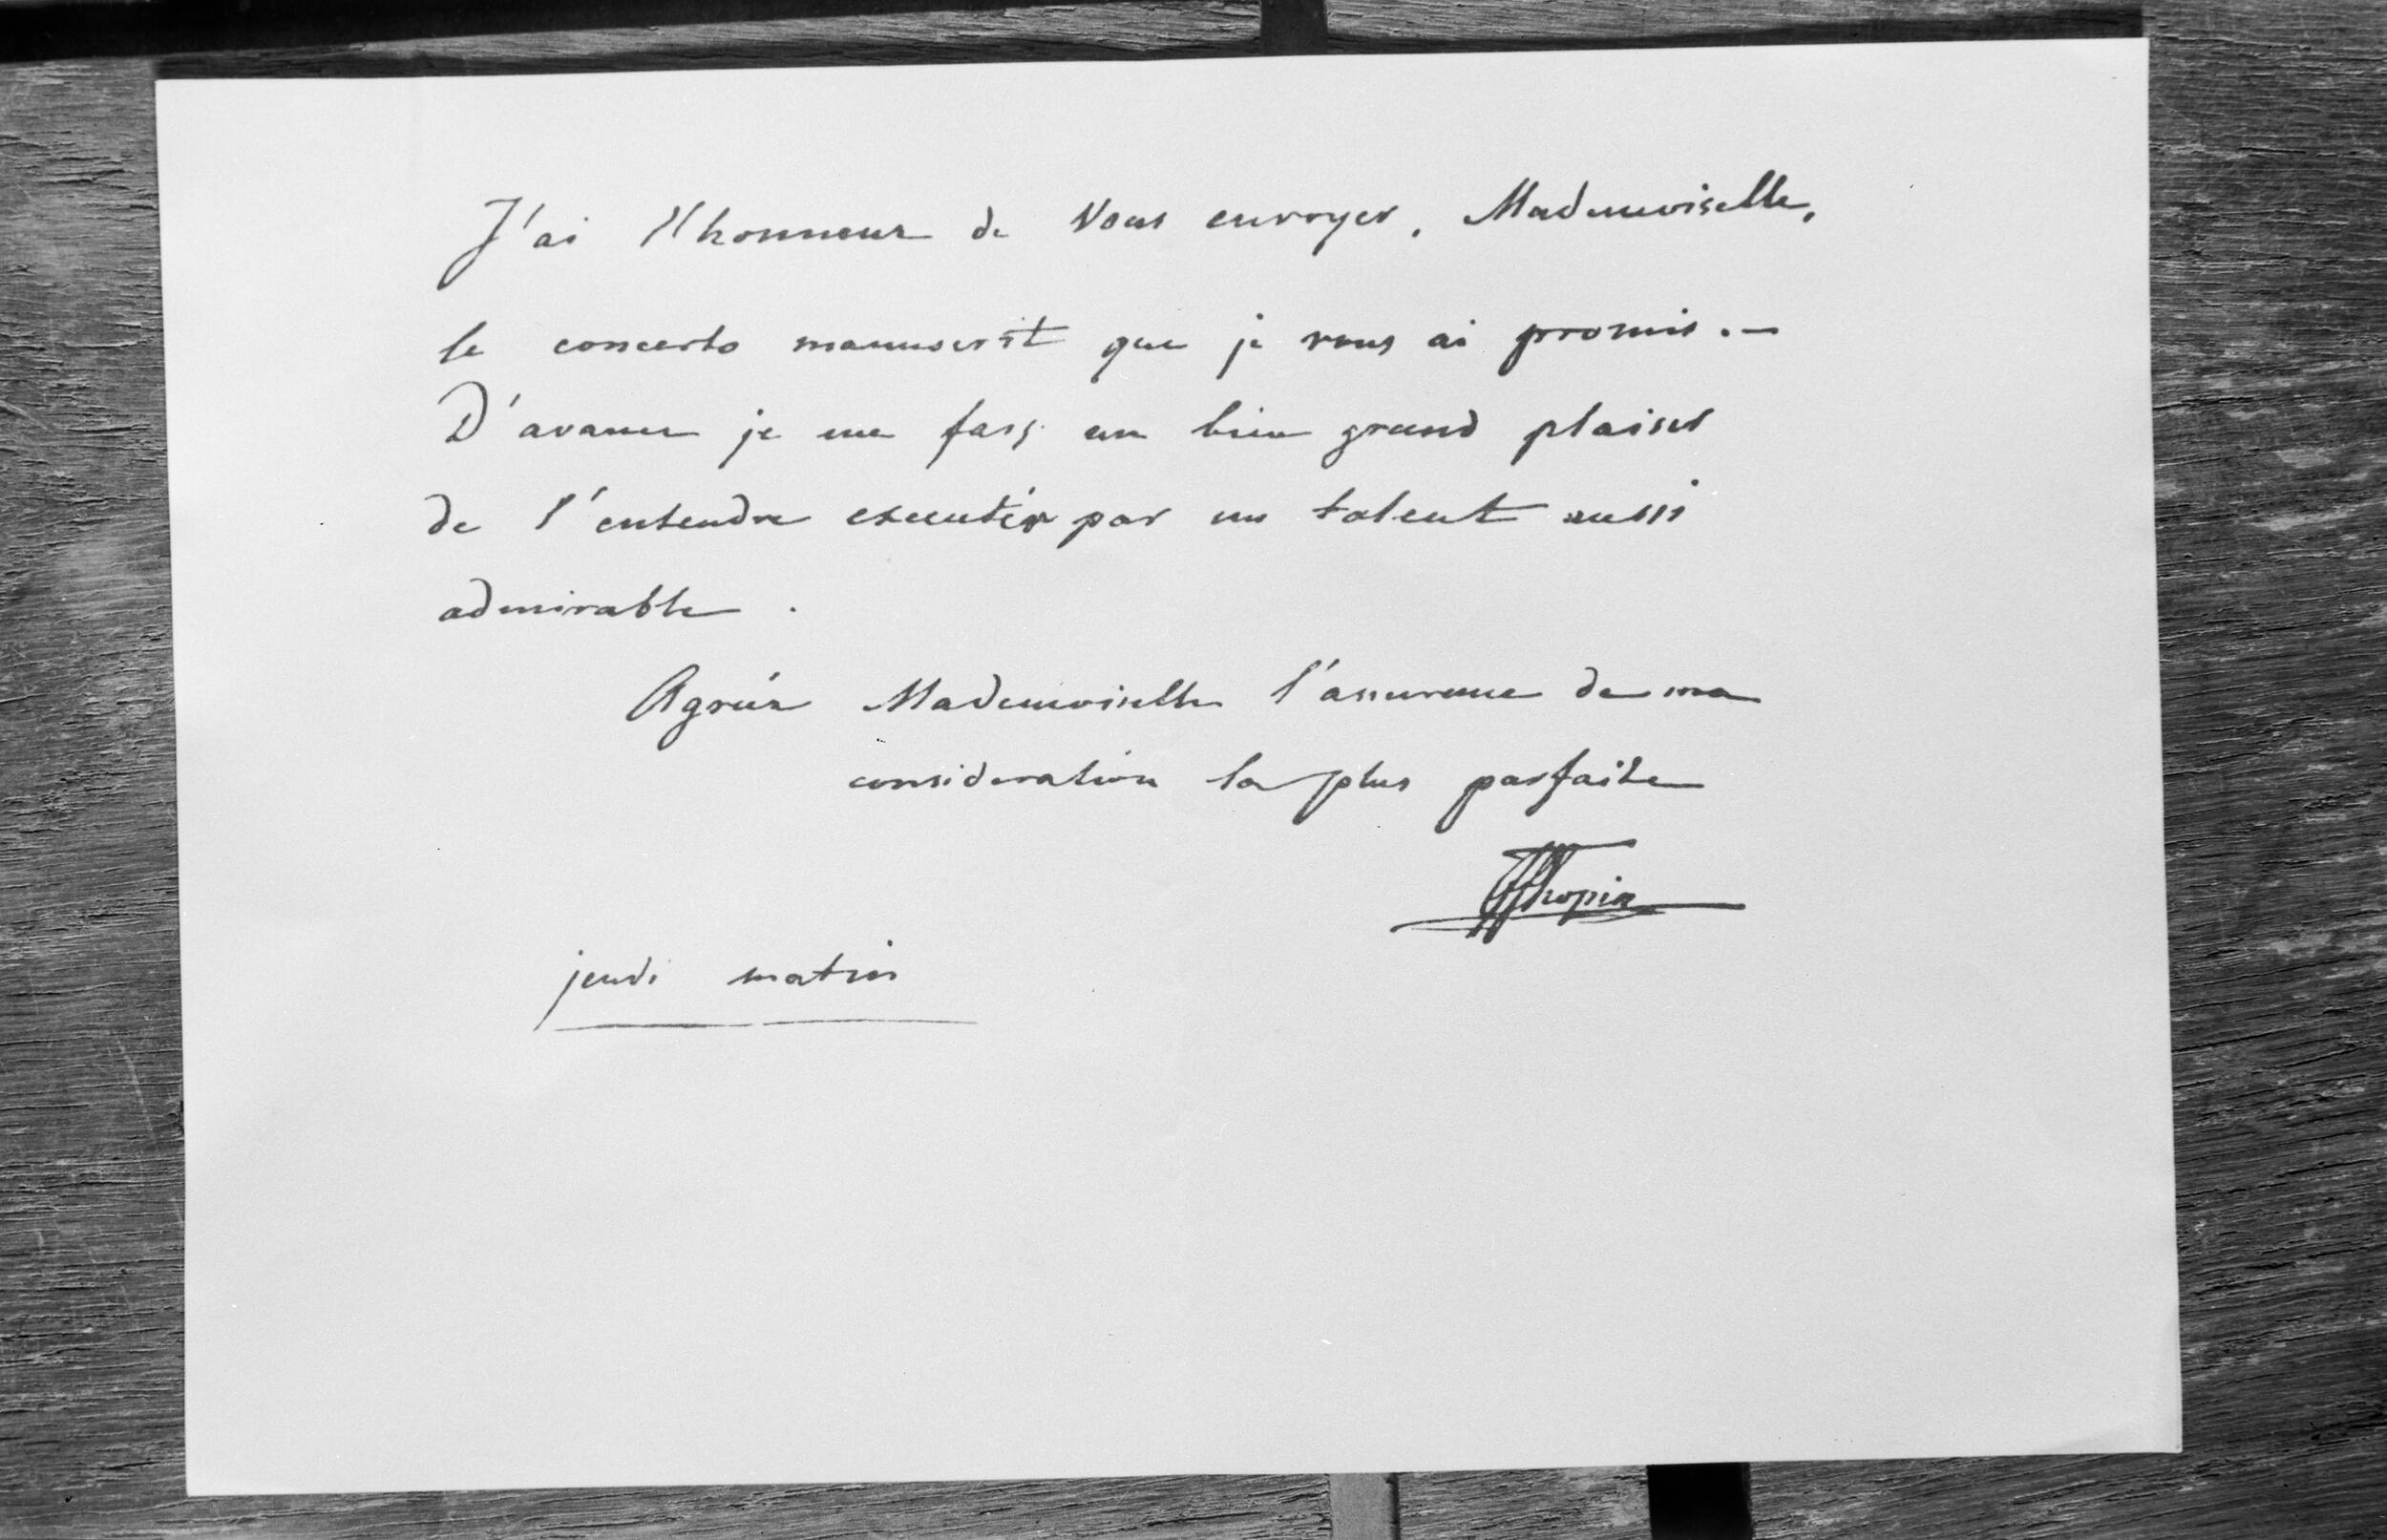 J'ai l'honneur de Vous envoyer, Mademoiselle,
le concerto manuscrit que je vous ai promis. —
D'avance je me fais un bien grand plaisir
de l'entendre executér par un talent aussi
admirable.
Agréez Mademoiselle l'assurance de ma
consideration la plus parfaite
FChopin
jeudi matin